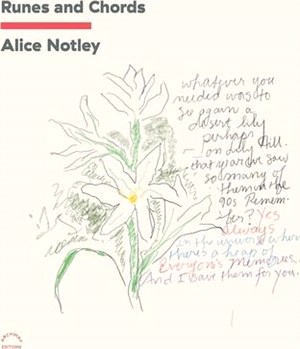 Runes and Chords
Alice Notley
whatever you
needed was to
see again a
desert lily
perhaps
on July Hill.
that year we saw
so many of
them in the
90s Remem-
ber? Yes
always
in the universe where
there's a heap of
Everyone's Memories.
And I save them for you.
ARCHWAY
EDITIONS